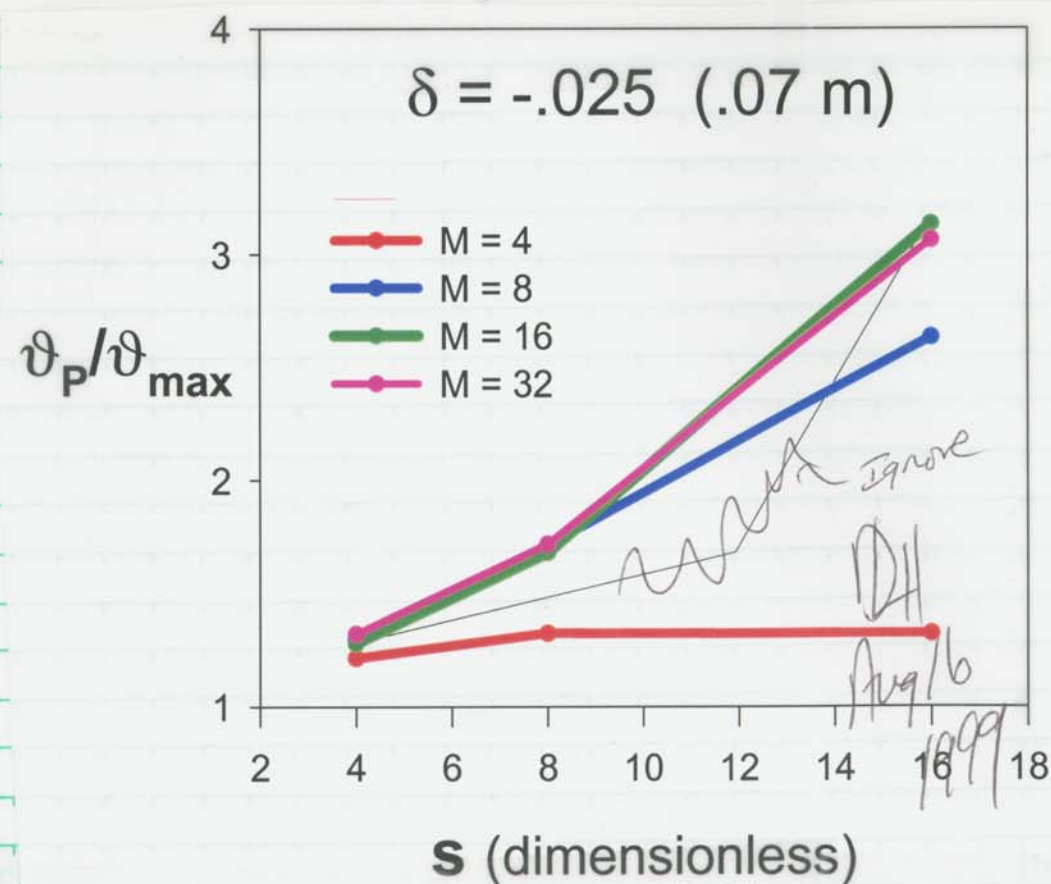 4
δ = -.025 (.07 m)
3
M = 4
M = 8
M = 16
M = 32
ϑP/ϑmax
2
Ignore
DH
Aug 16
1999
1
2 4 6 8 10 12 14 16 18
s (dimensionless)